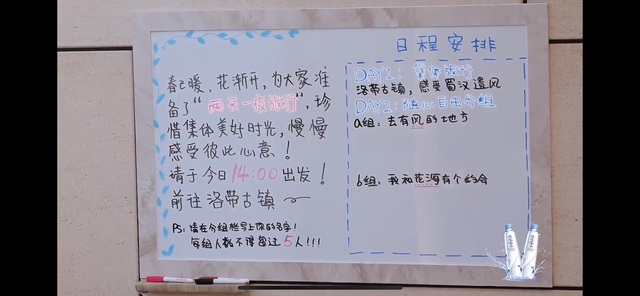 春已暖，花渐开，为大家准
备了“两天一夜旅行”，珍
惜集体美好时光，慢慢
感受彼此心意！
请于今日14:00出发！
前往洛带古镇
PS: 请在分组栏写上你的名字！
每组人数不得超过5人!!!
日程安排
DAY1: 集体旅行
洛带古镇，感受蜀汉遗风
DAY2: 随心自由分组
a组: 去有风的地方
b组: 我和花海有个约会